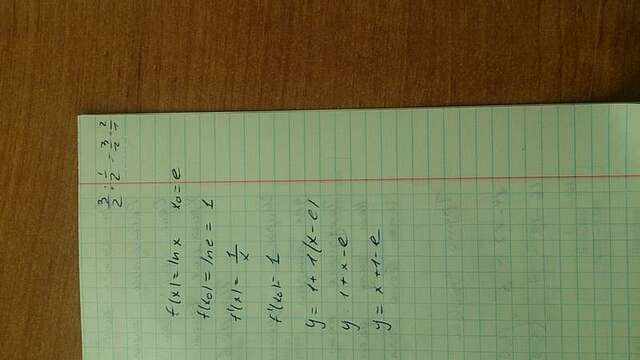 3/2 : 1/2 = 3/2 · 2/1
f(x) = ln x x₀ = e
f(x₀) = ln e = 1
f'(x) = 1/x
f'(x₀) = 1
y = 1 + 1(x - e)
y = 1 + x - e
y = x + 1 - e